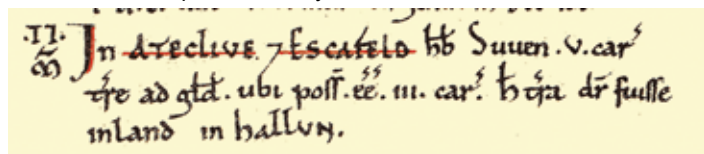 .II. In ATECLIVE ⁊ ESCAFELD hb̄ Suuen .v. car̛
M̃ t̛re ad gl̄d. ubi poss̄. ēē. iii. car̛. h̄ t̛ra dr̄ fuisse
inland in hallun.